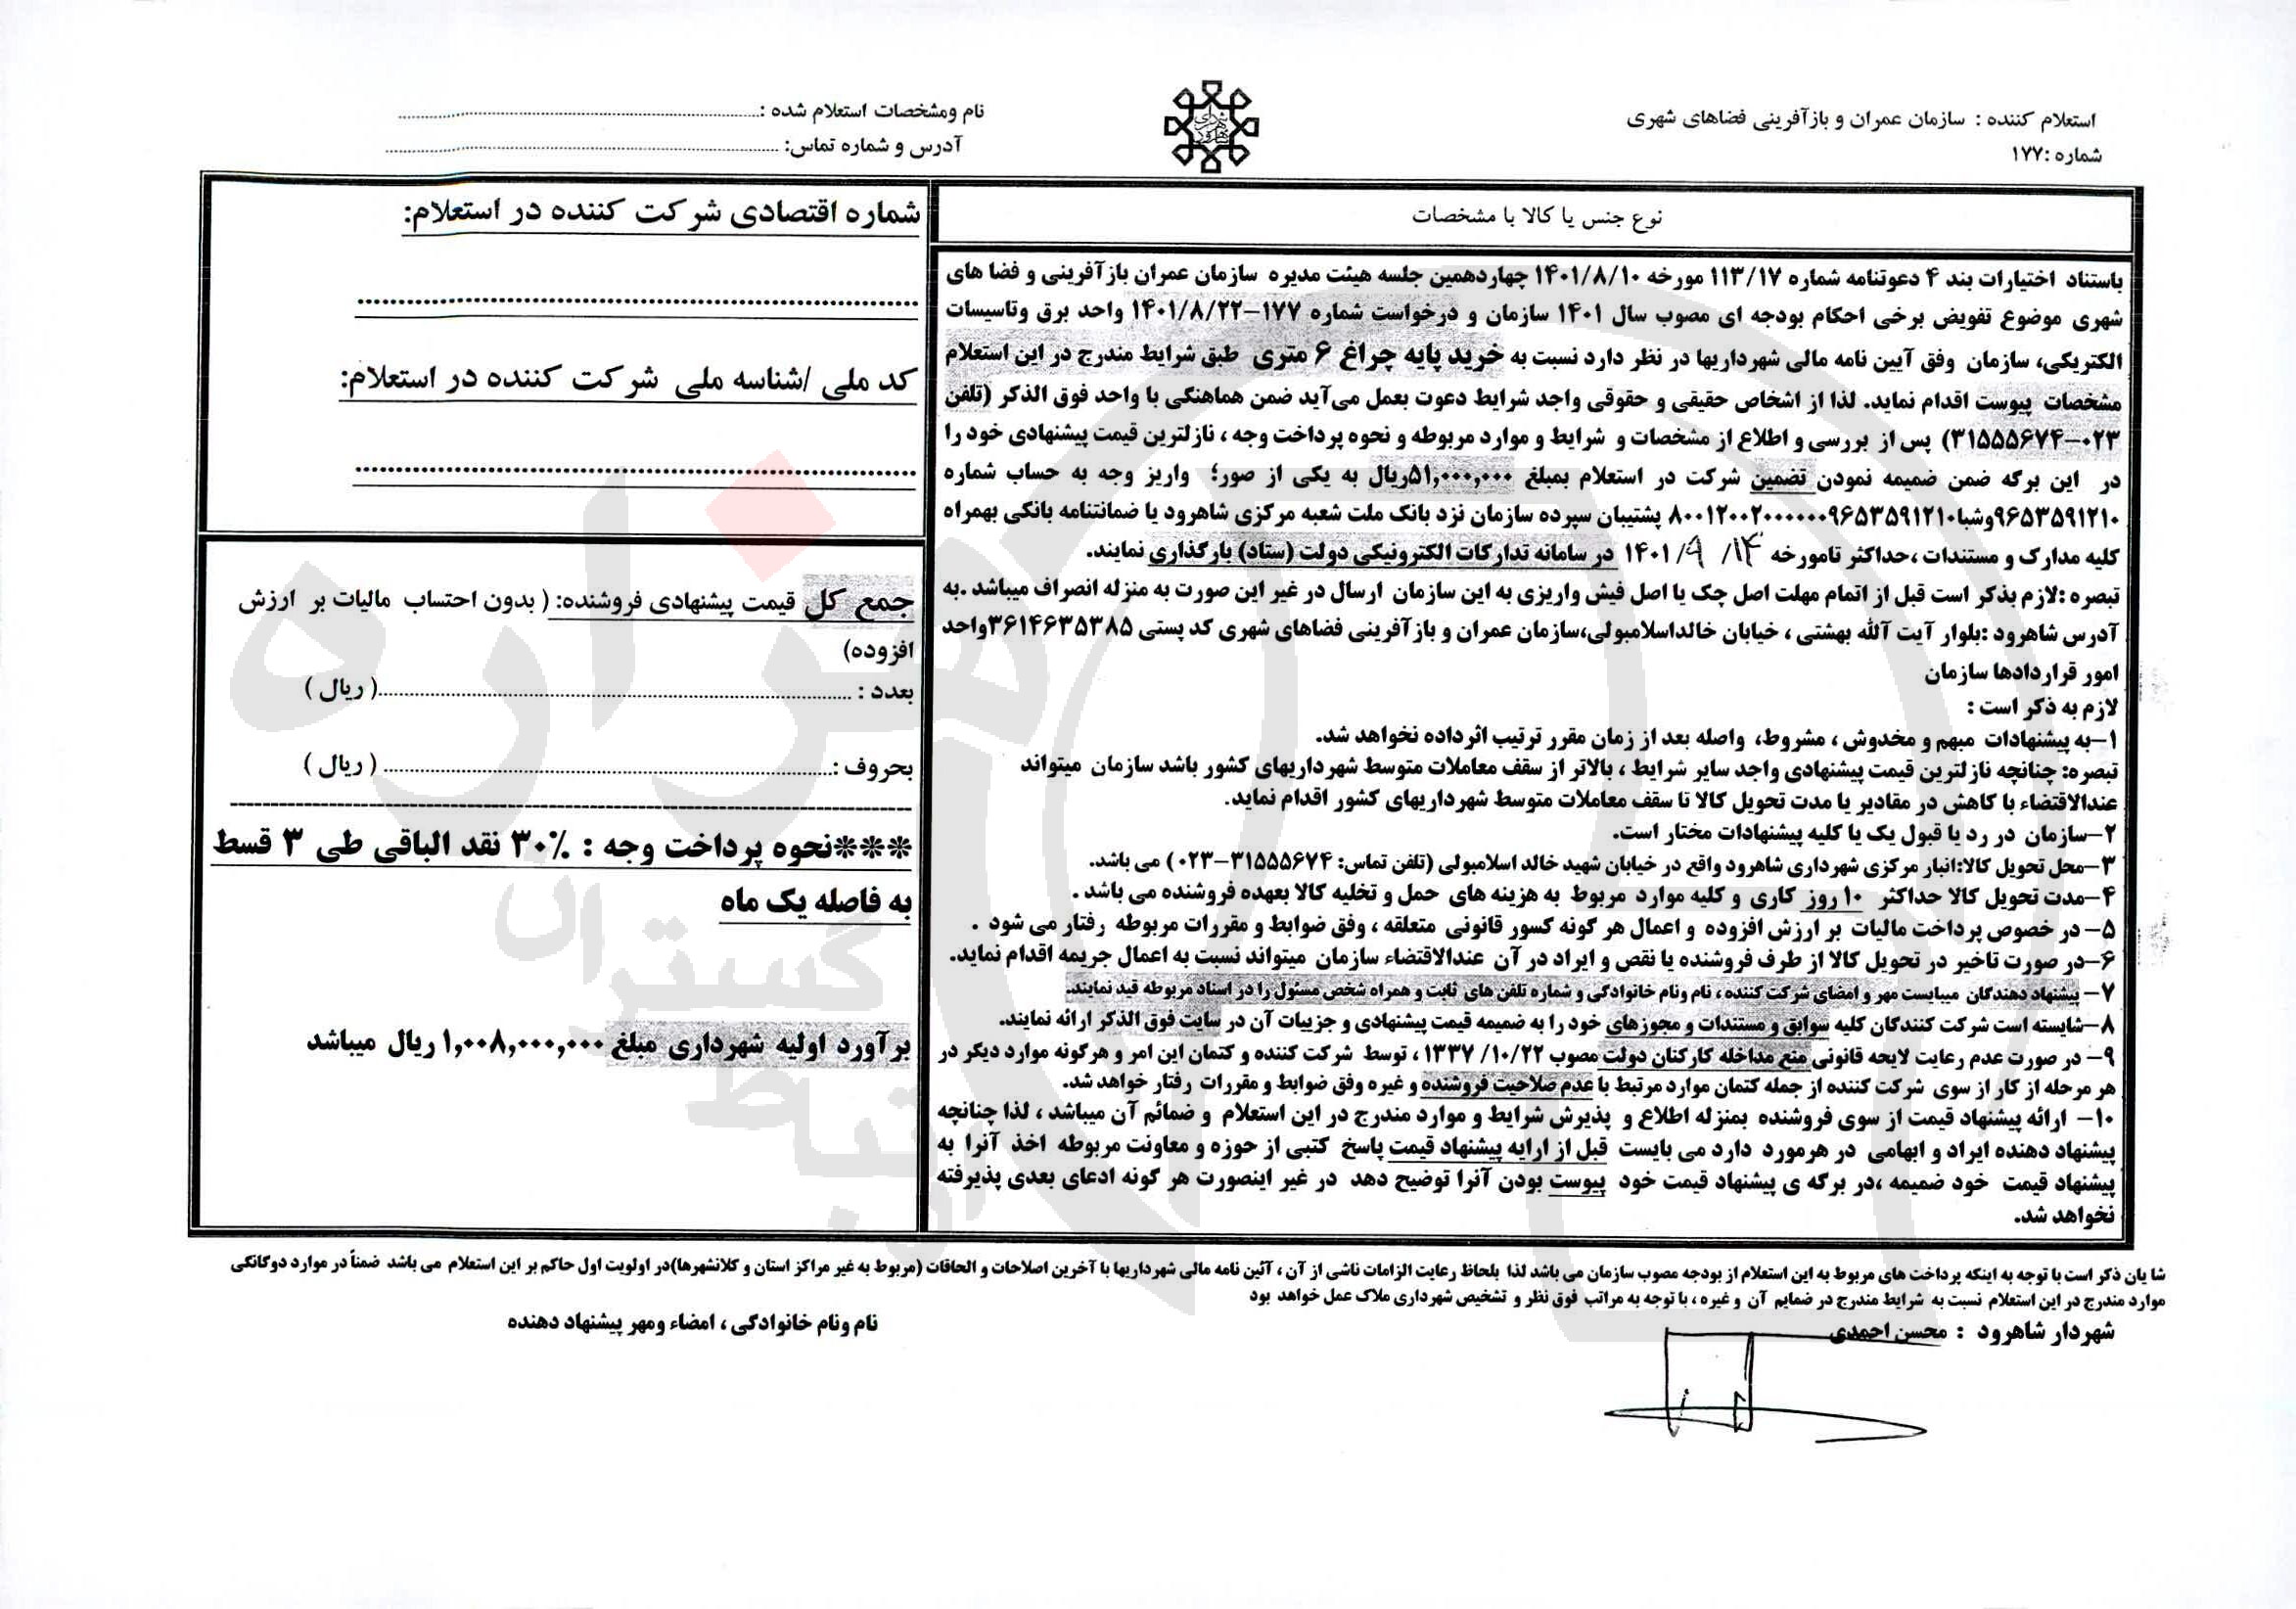 استعلام کننده : سازمان عمران و بازآفرینی فضاهای شهری
شماره :۱۷۷
شهرداری شاهرود
نام ومشخصات استعلام شده :
آدرس و شماره تماس:
نوع جنس یا کالا با مشخصات
باستناد اختیارات بند ۴ دعوتنامه شماره ۱۱۳/۱۷ مورخه ۱۴۰۱/۸/۱۰ چهاردهمین جلسه هیئت مدیره سازمان عمران بازآفرینی و فضا های
شهری موضوع تفویض برخی احکام بودجه ای مصوب سال ۱۴۰۱ سازمان و درخواست شماره ۱۷۷-۱۴۰۱/۸/۲۲ واحد برق وتاسیسات
الکتریکی، سازمان وفق آیین نامه مالی شهرداریها در نظر دارد نسبت به خرید پایه چراغ ۶ متری طبق شرایط مندرج در این استعلام
مشخصات پیوست اقدام نماید. لذا از اشخاص حقیقی و حقوقی واجد شرایط دعوت بعمل می‌آید ضمن هماهنگی با واحد فوق الذکر (تلفن
۰۲۳-۳۱۵۵۵۶۷۴) پس از بررسی و اطلاع از مشخصات و شرایط و موارد مربوطه و نحوه پرداخت وجه ، نازلترین قیمت پیشنهادی خود را
در این برگه ضمن ضمیمه نمودن تضمین شرکت در استعلام بمبلغ ۵۱,۰۰۰,۰۰۰ریال به یکی از صور؛ واریز وجه به حساب شماره
۹۶۵۳۵۹۱۲۱۰وشبا۸۰۰۱۲۰۰۲۰۰۰۰۰۰۹۶۵۳۵۹۱۲۱۰ پشتیبان سپرده سازمان نزد بانک ملت شعبه مرکزی شاهرود یا ضمانتنامه بانکی بهمراه
کلیه مدارک و مستندات ،حداکثر تامورخه ۱۴۰۱/۹/۱۴ در سامانه تدارکات الکترونیکی دولت (ستاد) بارگذاری نمایند.
تبصره :لازم بذکر است قبل از اتمام مهلت اصل چک یا اصل فیش واریزی به این سازمان ارسال در غیر این صورت به منزله انصراف میباشد .به
آدرس شاهرود :بلوار آیت آلله بهشتی ، خیابان خالداسلامبولی،سازمان عمران و بازآفرینی فضاهای شهری کد پستی ۳۶۱۴۶۳۵۳۸۵واحد
امور قراردادها سازمان
لازم به ذکر است :
۱-به پیشنهادات مبهم و مخدوش ، مشروط، واصله بعد از زمان مقرر ترتیب اثرداده نخواهد شد.
تبصره: چنانچه نازلترین قیمت پیشنهادی واجد سایر شرایط ، بالاتر از سقف معاملات متوسط شهرداریهای کشور باشد سازمان میتواند
عندالاقتضاء با کاهش در مقادیر یا مدت تحویل کالا تا سقف معاملات متوسط شهرداریهای کشور اقدام نماید.
۲-سازمان در رد یا قبول یک یا کلیه پیشنهادات مختار است.
۳-محل تحویل کالا:انبار مرکزی شهرداری شاهرود واقع در خیابان شهید خالد اسلامبولی (تلفن تماس: ۳۱۵۵۵۶۷۴-۰۲۳) می باشد.
۴-مدت تحویل کالا حداکثر ۱۰ روز کاری و کلیه موارد مربوط به هزینه های حمل و تخلیه کالا بعهده فروشنده می باشد .
۵- در خصوص پرداخت مالیات بر ارزش افزوده و اعمال هر گونه کسور قانونی متعلقه ، وفق ضوابط و مقررات مربوطه رفتار می شود .
۶-در صورت تاخیر در تحویل کالا از طرف فروشنده یا نقص و ایراد در آن عندالاقتضاء سازمان میتواند نسبت به اعمال جریمه اقدام نماید.
۷- پیشنهاد دهندگان میبایست مهر و امضای شرکت کننده ، نام ونام خانوادگی و شماره تلفن های ثابت و همراه شخص مسئول را در اسناد مربوطه قید نمایند.
۸-شایسته است شرکت کنندگان کلیه سوابق و مستندات و مجوزهای خود را به ضمیمه قیمت پیشنهادی و جزییات آن در سایت فوق الذکر ارائه نمایند.
۹- در صورت عدم رعایت لایحه قانونی منع مداخله کارکنان دولت مصوب ۱۳۳۷/۱۰/۲۲ ، توسط شرکت کننده و کتمان این امر و هرگونه موارد دیگر در
هر مرحله از کار از سوی شرکت کننده از جمله کتمان موارد مرتبط با عدم صلاحیت فروشنده و غیره وفق ضوابط و مقررات رفتار خواهد شد.
۱۰- ارائه پیشنهاد قیمت از سوی فروشنده بمنزله اطلاع و پذیرش شرایط و موارد مندرج در این استعلام و ضمائم آن میباشد ، لذا چنانچه
پیشنهاد دهنده ایراد و ابهامی در هرمورد دارد می بایست قبل از ارایه پیشنهاد قیمت پاسخ کتبی از حوزه و معاونت مربوطه اخذ آنرا به
پیشنهاد قیمت خود ضمیمه ،در برگه ی پیشنهاد قیمت خود پیوست بودن آنرا توضیح دهد در غیر اینصورت هر گونه ادعای بعدی پذیرفته
نخواهد شد.
شماره اقتصادی شرکت کننده در استعلام:
کد ملی /شناسه ملی شرکت کننده در استعلام:
جمع کل قیمت پیشنهادی فروشنده: ( بدون احتساب مالیات بر ارزش
افزوده)
بعدد : ( ریال )
بحروف : ( ریال )
***نحوه پرداخت وجه : ۳۰٪ نقد الباقی طی ۳ قسط
به فاصله یک ماه
برآورد اولیه شهرداری مبلغ ۱,۰۰۸,۰۰۰,۰۰۰ ریال میباشد
شا یان ذکر است با توجه به اینکه پرداخت های مربوط به این استعلام از بودجه مصوب سازمان می باشد لذا بلحاظ رعایت الزامات ناشی از آن ، آئین نامه مالی شهرداریها با آخرین اصلاحات و الحاقات (مربوط به غیر مراکز استان و کلانشهرها)در اولویت اول حاکم بر این استعلام می باشد ضمناً در موارد دوگانگی
موارد مندرج در این استعلام نسبت به شرایط مندرج در ضمایم آن و غیره ، با توجه به مراتب فوق نظر و تشخیص شهرداری ملاک عمل خواهد بود
شهردار شاهرود : محسن احمدی
نام ونام خانوادگی ، امضاء ومهر پیشنهاد دهنده
هزاره
گستران
ارتباط